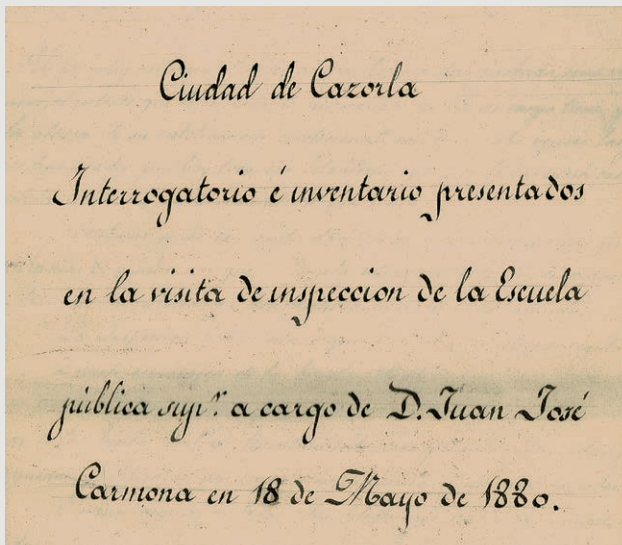 Ciudad de Cazorla
Interrogatorio é inventario presentados
en la visita de inspeccion de la Escuela
pública supr. a cargo de D. Juan José
Carmona en 18 de Mayo de 1880.